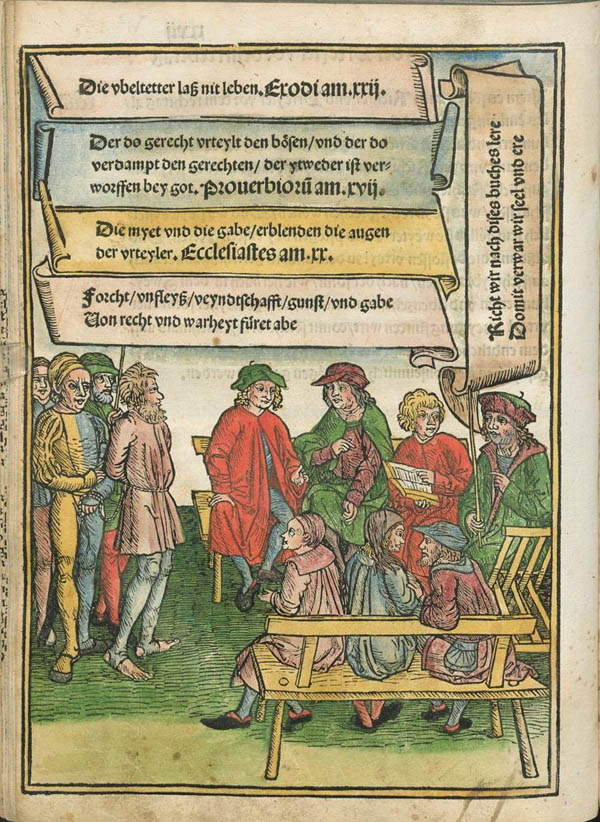 Die vbeltetter laß nit leben. Exodi am. xxij.
Der do gerecht vrteylt den bösen/ vnd der do
verdampt den gerechten/ der ytweder ist ver-
worffen bey got. Prouerbiorū am. xvij.
Die myet vnd die gabe/ erblenden die augen
der vrteyler. Ecclesiastes am. xx.
Forcht/ vnfleyß/ veyndtschafft/ gunst/ vnd gabe
Von recht vnd warheyt füret abe
Richt wir nach dises buches lere
Domit verwar wir seel vnd ere